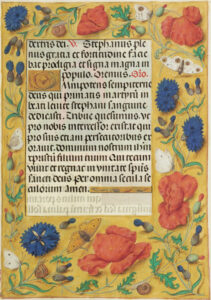 dextris dei. V. Stephanus ple
nus gratia et fortitudine facie
bat prodigia et signa magna in
populo. Oremus. Oro.
Omnipotens sempiterne
deus qui primitias martirii in
beati levite stephani sanguine
dedicasti. Tribue quesumus. ut
pro nobis intercessor existat qui
pro suis etiam persecutoribus ex
oravit. dominum nostrum ihm
xpristum filium tuum. Qui tecum
vivit et regnat in unitate spūs
sancti deus. Per omnia secula se
culorum amen.